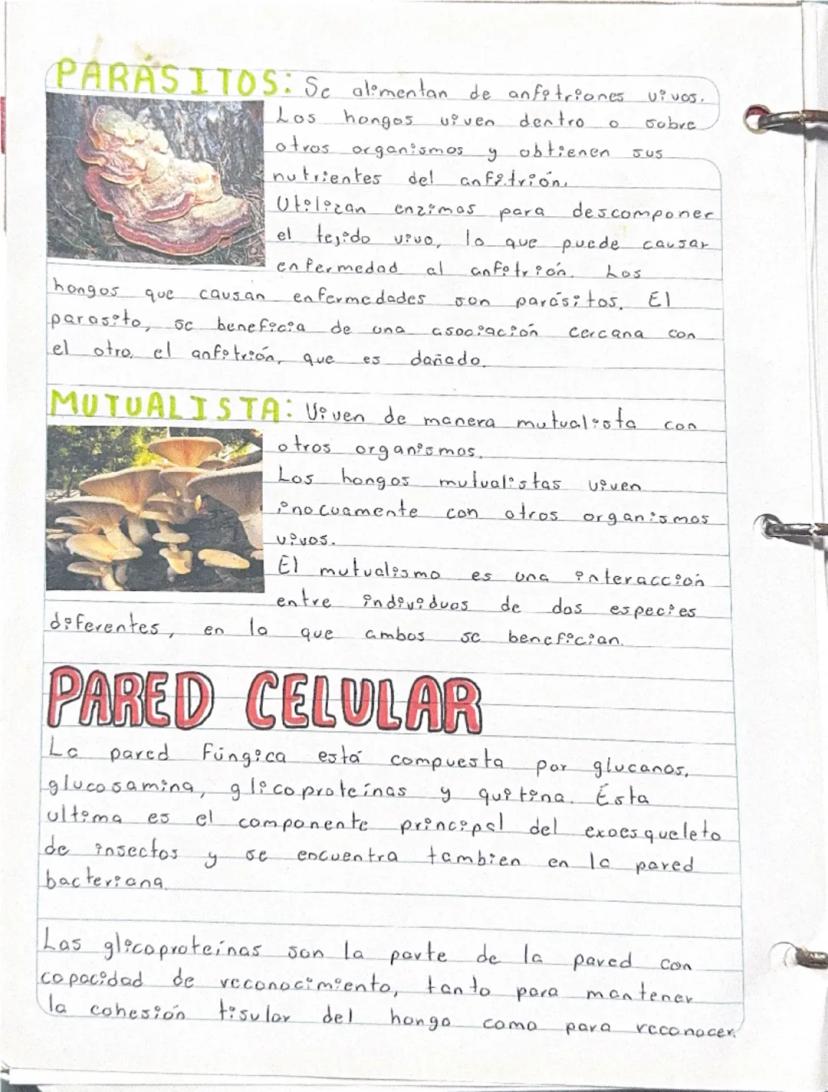 PARÁSITOS: Se alimentan de anfitriones vivos.
Los hongos viven dentro o sobre
otros organismos y obtienen sus
nutrientes del anfitrión.
Utilizan enzimas para descomponer
el tejido vivo, lo que puede causar
enfermedad al anfitrión. Los
hongos que causan enfermedades son parásitos. El
parasito, se beneficia de una asociación cercana con
el otro, el anfitrión, que es dañado.
MUTUALISTA: Viven de manera mutualista con
otros organismos.
Los hongos mutualistas viven
inocuamente con otros organismos
vivos.
El mutualismo es una interacción
entre individuos de dos especies
diferentes, en la que ambos se benefician.
PARED CELULAR
La pared fúngica está compuesta por glucanos,
glucosamina, glicoproteínas y quitina. Ésta
ultima es el componente principal del exoesqueleto
de insectos y se encuentra tambien en la pared
bacteriana.
Las glicoproteínas son la parte de la pared con
capacidad de reconocimiento, tanto para mantener
la cohesión tisular del hongo como para reconocer